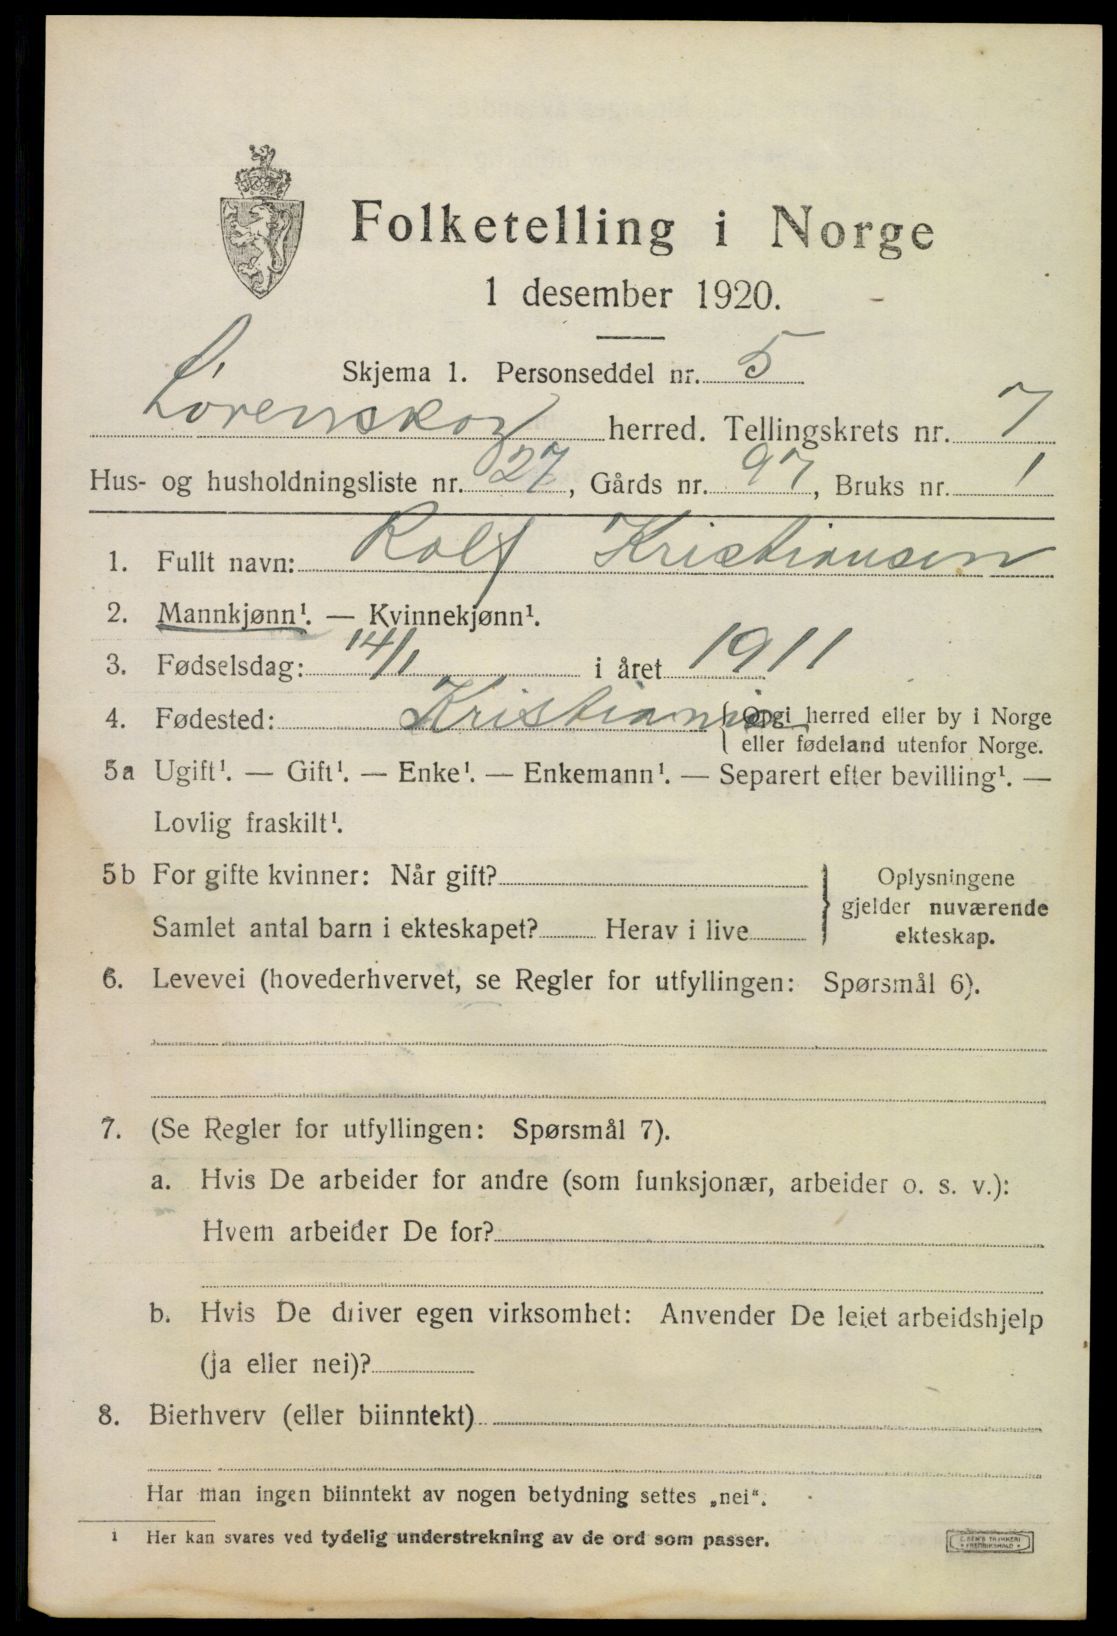 Folketelling i Norge
1 desember 1920.
Skjema 1. Personseddel nr. 5
Lørenskog herred. Tellingskrets nr. 7
Hus- og husholdningsliste nr. 27, Gårds nr. 97, Bruks nr. 1
1. Fullt navn: Rolf Kristiansen
2. Mannkjønn¹. — Kvinnekjønn¹.
3. Fødselsdag: 14/1 i året 1911
4. Fødested: Kristiania { Opgi herred eller by i Norge
eller fødeland utenfor Norge.
5a Ugift¹. — Gift¹. — Enke¹. — Enkemann¹. — Separert efter bevilling¹. —
Lovlig fraskilt¹.
5b For gifte kvinner: Når gift? } Oplysningene
gjelder nuværende
Samlet antal barn i ekteskapet? Herav i live
ekteskap.
6. Levevei (hovederhvervet, se Regler for utfyllingen: Spørsmål 6).
7. (Se Regler for utfyllingen: Spørsmål 7).
a. Hvis De arbeider for andre (som funksjonær, arbeider o. s. v.):
Hvem arbeider De for?
b. Hvis De driver egen virksomhet: Anvender De leiet arbeidshjelp
(ja eller nei)?
8. Bierhverv (eller biinntekt)
Har man ingen biinntekt av nogen betydning settes „nei“.
¹ Her kan svares ved tydelig understrekning av de ord som passer.